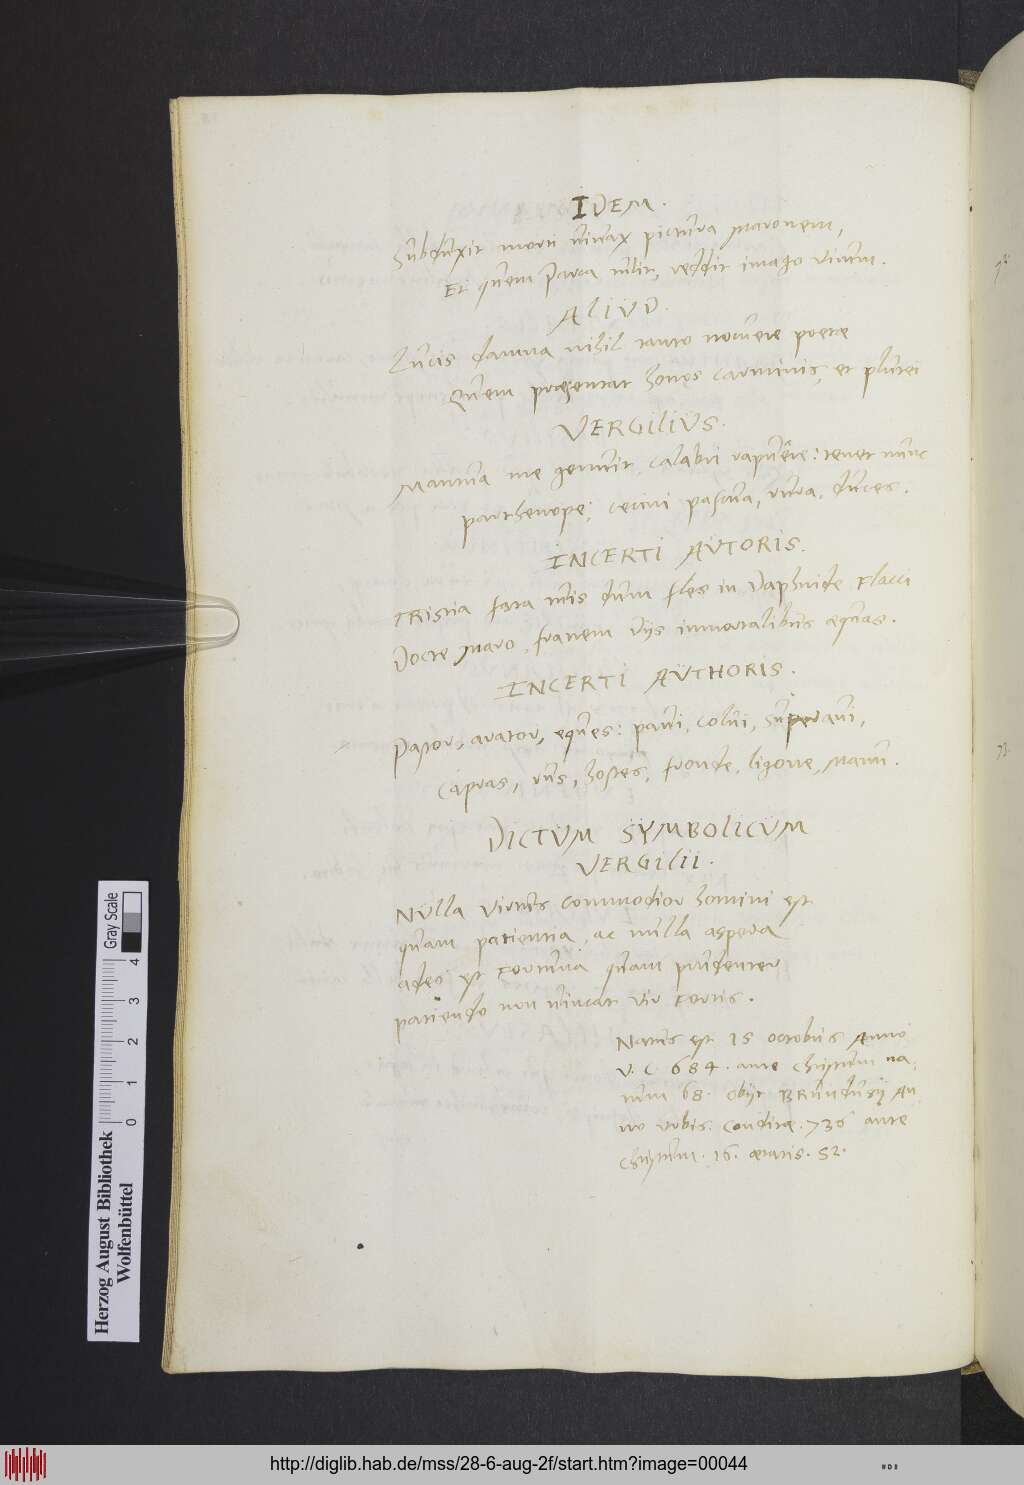 IDEM.
Subduxit morti vivax pictura Maronem,
Et quem Parca tulit, reddit imago virum.
ALIUD.
Lucis damna nihil tanto nocuere poetae
Quem praesentat honos carminis, et plutei
VERGILIUS.
Mantua me genuit, Calabri rapuêre: tenet nunc
parthenope; cecini pascua, rura, duces.
INCERTI AUTORIS.
TRistia fata tui dum fles in Daphnide Flacci
Docte Maro, fratrem Dijs immortalibus aequas.
INCERTI AUTHORIS.
Pastor, arator, eques: pavi, colui, superavi,
Capras, rus, hostes, fronde, ligone, Manu.
DICTUM SYMBOLICUM
VERGILII.
NUlla virtus commodior homini est
quam patientia, ac nulla aspera
adeo est Fortuna quam prudenter
patiendo non vincat vir Fortis.
Natus est 15 octobris Anno
V. C. 684. ante Christum na
tum 68. obijt BRUndusij An
no urbis. Conditae. 736 ante
Christum. 16. aetatis. 52.
Herzog August Bibliothek
Wolfenbüttel
0 1 2 3 4
Gray Scale
http://diglib.hab.de/mss/28-6-aug-2f/start.htm?image=00044